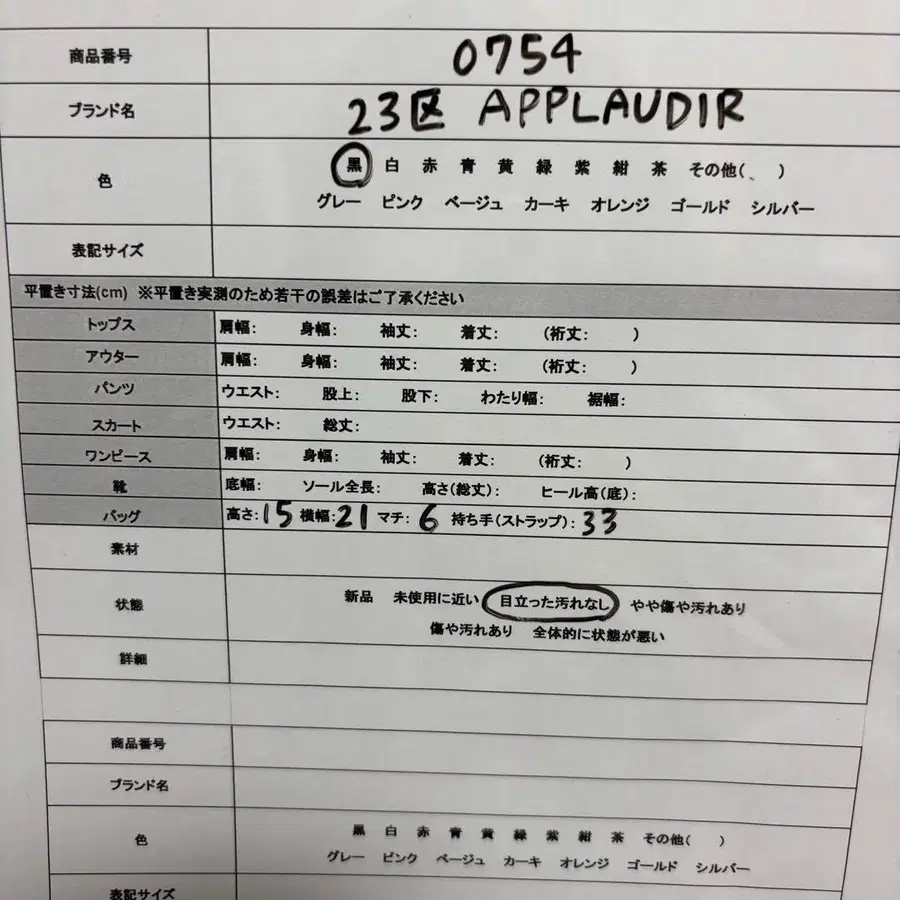 商品番号 0754
ブランド名 23区 APPLAUDIR
色 黒 白 赤 青 黄 緑 紫 紺 茶 その他(、 )
グレー ピンク ベージュ カーキ オレンジ ゴールド シルバー
表記サイズ
平置き寸法(cm) ※平置き実測のため若干の誤差はご了承ください
トップス 肩幅: 身幅: 袖丈: 着丈: (裄丈: )
アウター 肩幅: 身幅: 袖丈: 着丈: (裄丈: )
パンツ ウエスト: 股上: 股下: わたり幅: 裾幅:
スカート ウエスト: 総丈:
ワンピース 肩幅: 身幅: 袖丈: 着丈: (裄丈: )
靴 底幅: ソール全長: 高さ(総丈): ヒール高(底):
バッグ 高さ:15 横幅:21 マチ:6 持ち手(ストラップ):33
素材
状態 新品 未使用に近い 目立った汚れなし やや傷や汚れあり
傷や汚れあり 全体的に状態が悪い
詳細
商品番号
ブランド名
色 黒 白 赤 青 黄 緑 紫 紺 茶 その他( )
グレー ピンク ベージュ カーキ オレンジ ゴールド シルバー
表記サイズ